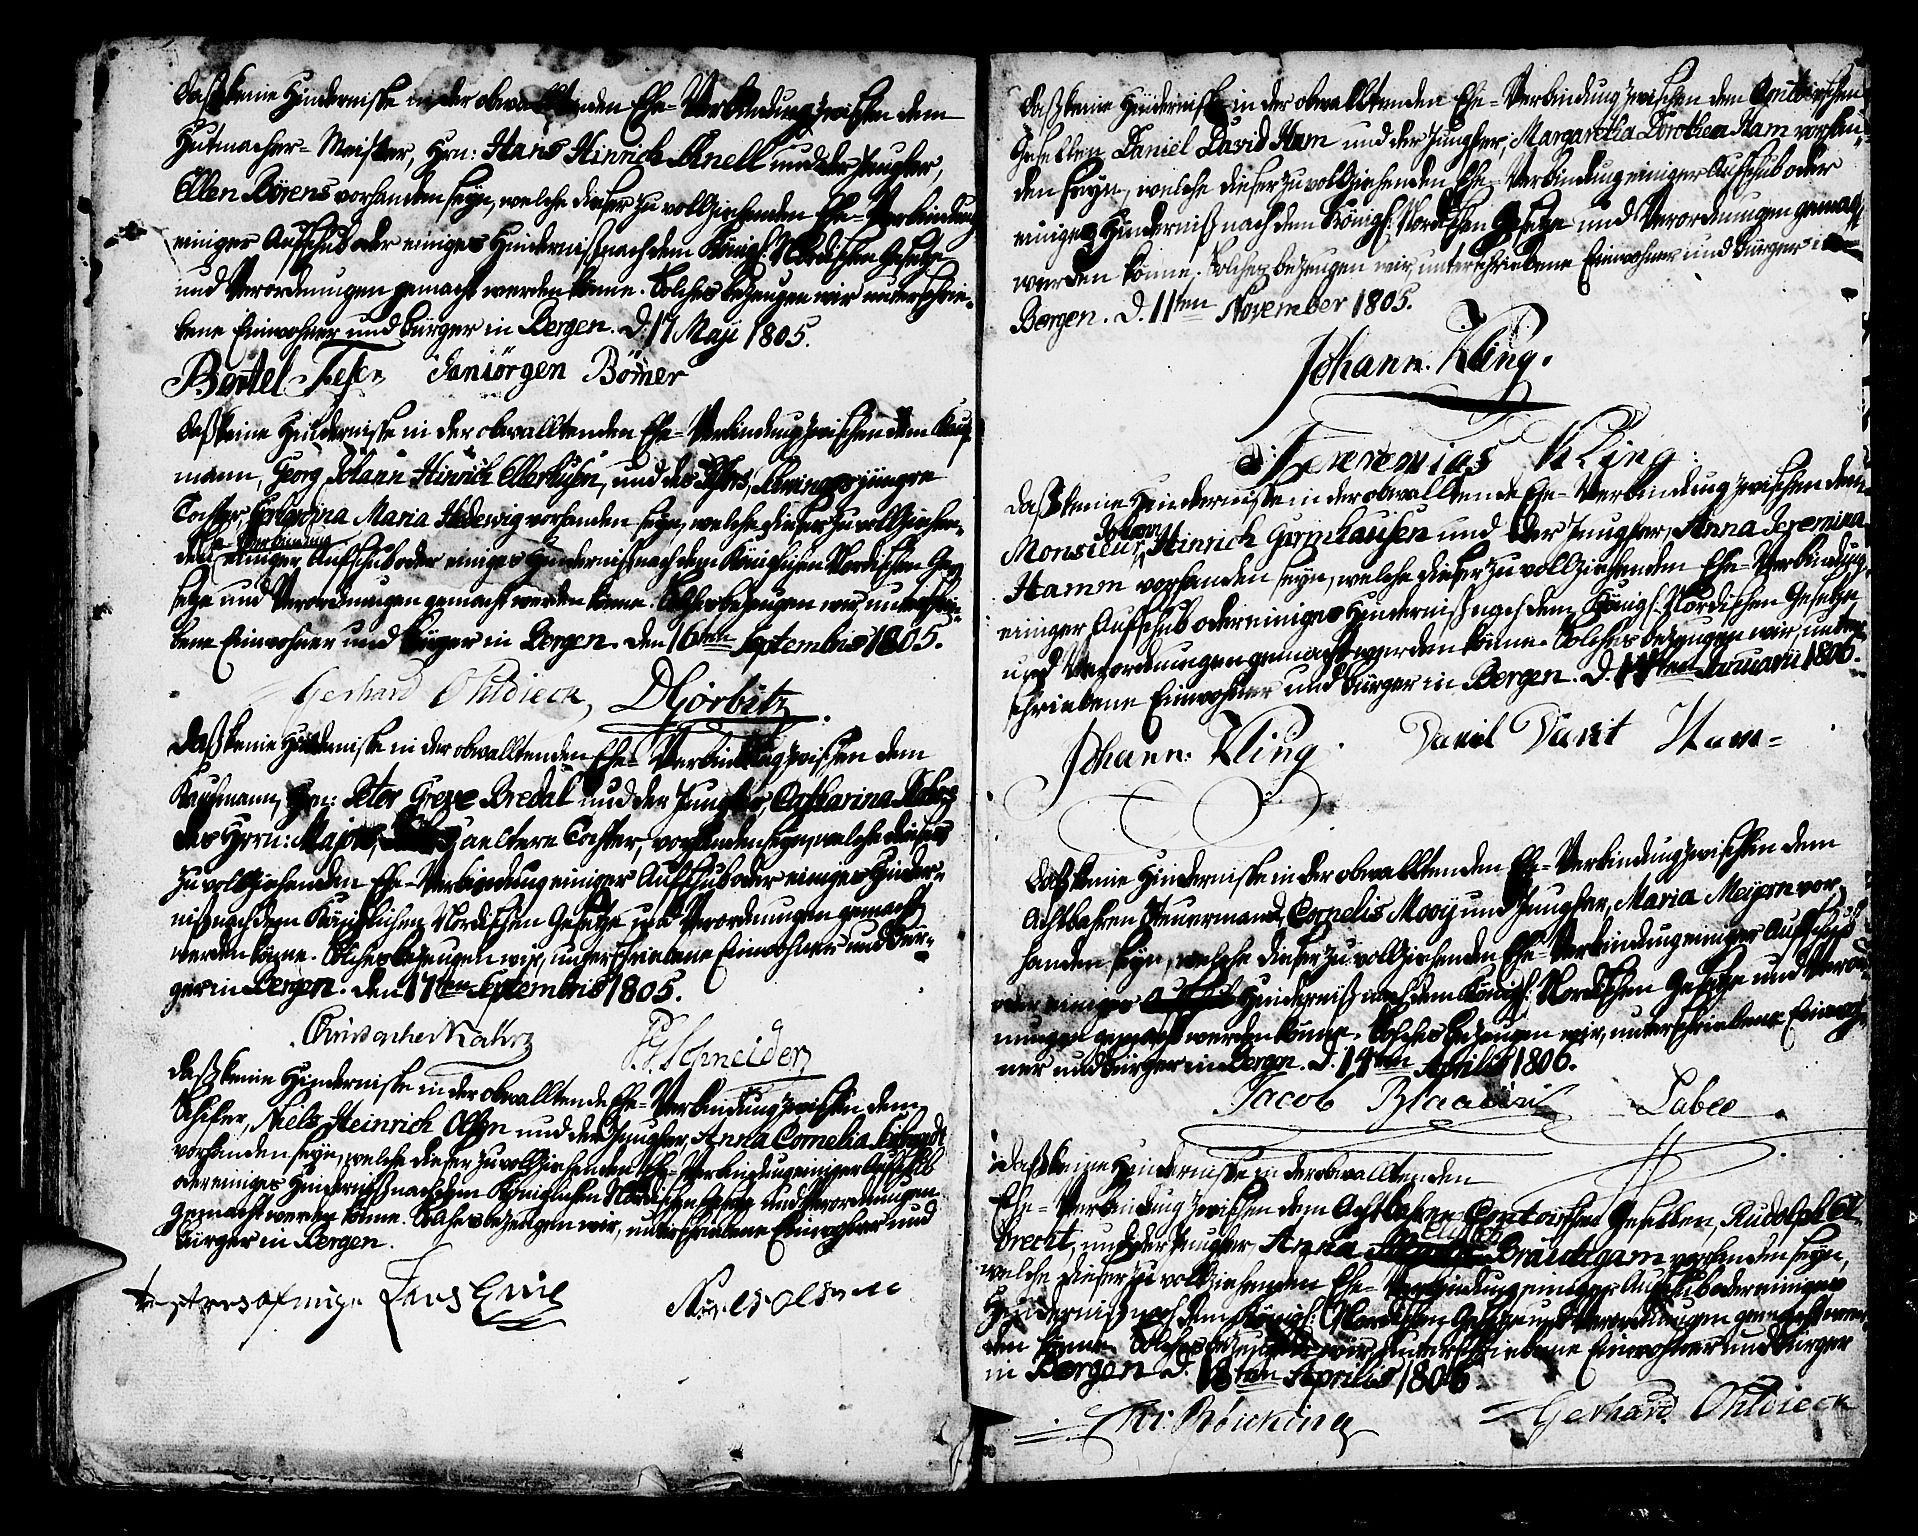 Daß keine Hinderniße in der obwalltenden Ehe-Verbindung zwischen dem
Hutmacher-Meister, Hrn: Hans Hinrich Knell und der Jungfer,
Ellen Börens vorhanden seyn, welche dieser zu vollziehenden Ehe-Verbindung
einiger Aufschub oder einiges Hinderniß nach dem Königl: Nordischen Gesetze
und Verordnungen gemacht werden könne. Solches bezeugen wir unterschrie-
bene Einwohner und Bürger in Bergen. D. 17 Maji 1805.
Bertel Janiörgen Bömer
Daß keine Hinderniße in der obwalltenden Ehe-Verbindung zwischen dem Kauf-
mann, Georg Johann Hinrich Ellerhusen, und des jüngre
Tochter, Maria Hedewig vorhanden seyn, welche dieser zu vollziehen-
den Ehe-Verbindung einiger Aufschub oder einiges Hinderniß nach dem Königlichen Nordischen Ge-
setze und Verordnungen gemacht werden könne. Solches bezeugen wir unterschrie-
bene Einwohner und Bürger in Bergen. den 16ten Septembris 1805.
Gerhard Ohldieck, D Görbitz
Daß keine Hinderniße in der obwalltenden Ehe-Verbindung zwischen dem
Kaufmann, Hrn: Peter Greve Bredal und der Jungfer, Catharina
des Herrn: Major, aeltere Tochter, vorhanden seyn, welche dieser
zu vollziehenden Ehe-Verbindung einiger Aufschub oder einiges Hinder-
niß nach dem Königlichen Nordischen Gesetze und Verordnungen gemacht
werden könne. Solches bezeugen wir, unterschriebene Einwohner und Bür-
ger in Bergen. den 17ten Septembris 1805.
Christopher Kahrs J. Schneider
Daß keine Hinderniße in der obwalltende Ehe-Verbindung zwischen dem
Schiffer, Niels Heinrich Olsen und der Jungfer, Anna Cornelia
vorhanden seyn, welche dieser zu vollziehenden Ehe-Verbindung einiger Aufschub
oder einiges Hinderniß nach dem Königlichen Nordischen Gesetze und Verordnungen
gemacht werden könne. Solches bezeugen wir, unterschriebene Einwohner und
Bürger in Bergen.
Niels Olsen
Daß keine Hinderniße in der obwalltenden Ehe-Verbindung zwischen dem Contoirschen
Gesellen, Daniel David Ham und der Jungfer, Margaretha Dorothea Ham vorhan-
den seyn, welche dieser zu vollziehenden Ehe-Verbindung einiger Aufschub oder
einiges Hinderniß nach dem Königl: Nordischen Gesetze und Verordnungen gemacht
werden könne. Solches bezeugen wir, unterschriebene Einwohner und Bürger in
Bergen. D. 11ten November 1805.
Johann. Kling.
Jeremias Kling.
Daß keine Hinderniße in der obwalltende Ehe-Verbindung zwischen dem
Monsieur, Johann Hinrich Germhausen und der Jungfer, Anna Jeremina
Hamm vorhanden seyn, welche dieser zu vollziehenden Ehe-Verbindung,
einiger Aufschub oder einiges Hinderniß nach dem Königl: Nordischen Gesetze
und Verordnungen gemacht werden könne. Solches bezeugen wir, unter-
schriebene Einwohner und Bürger in Bergen. D. 14ten Januarii 1806.
Johann: Kling. Daniel Davit Ham=
Daß keine Hinderniße in der obwalltenden Ehe-Verbindung zwischen dem
Achtbahren Steuermand, Cornelis Mooy und Jungfer, Maria Meyern vor-
handen seyn, welche dieser zu vollziehenden Ehe-Verbindung einiger Aufschub
oder einiges Hinderniß nach dem Königl: Nordischen Gesetze und Verord-
nungen gemacht werden könne. Solches bezeugen wir, unterschriebene Einwoh-
ner und Bürger in Bergen. D. 14ten Aprilis 1806.
Jacob
Daß keine Hinderniße in der obwalltenden
Ehe-Verbindung zwischen dem Achtbahren Contoirschen Gesellen, Rudolph Al-
brecht, und der Jungfer, Anna Bräutigam vorhanden seyn,
welche dieser zu vollziehenden Ehe-Verbindung einiger Aufschub oder einiges
Hinderniß nach dem Königl: Nordischen Gesetze und Verordnungen gemacht wer-
den könne. Solches bezeugen wir, unterschriebene Einwohner und Bürger
in Bergen D. 18ten Aprilis 1806.
Gerhard Ohldieck